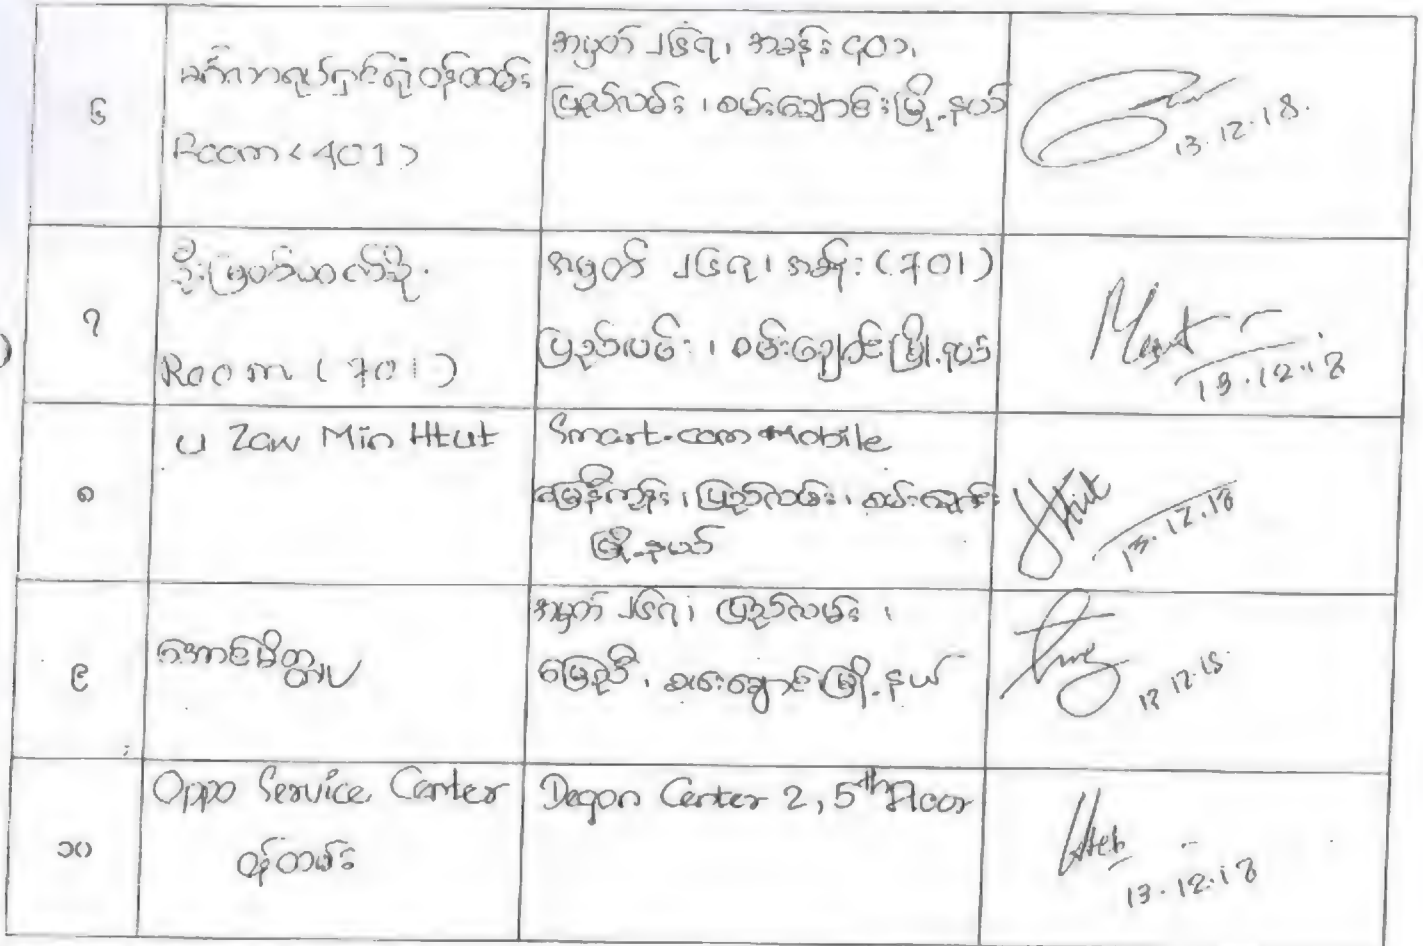 ၆
မင်္ဂလာရုပ်ရှင်ရုံဝန်ထမ်း
Room <401>
အမှတ် ၂၆၇၊ အခန်း ၄၀၁၊
ပြည်လမ်း ၊ စမ်းချောင်းမြို့နယ်
13.12.18.
၇
ဦးမြတ်
Room (701)
အမှတ် ၂၆၇၊ အခန်း (701)
ပြည်လမ်း ၊ စမ်းချောင်းမြို့နယ်
13.12.18
၈
U Zaw Min Htut
Smart.com Mobile
မြေနီကုန်း ၊ ပြည်လမ်း ၊ စမ်းချောင်း
မြို့နယ်
13.12.18
၉
အောင်မိတ္တူ
အမှတ် ၂၆၇၊ ပြည်လမ်း ၊
မြေညီ ၊ စမ်းချောင်းမြို့နယ်
13.12.18
၁၀
Oppo Service Center
ဝန်ထမ်း
Dagon Center 2, 5th Floor
13.12.18